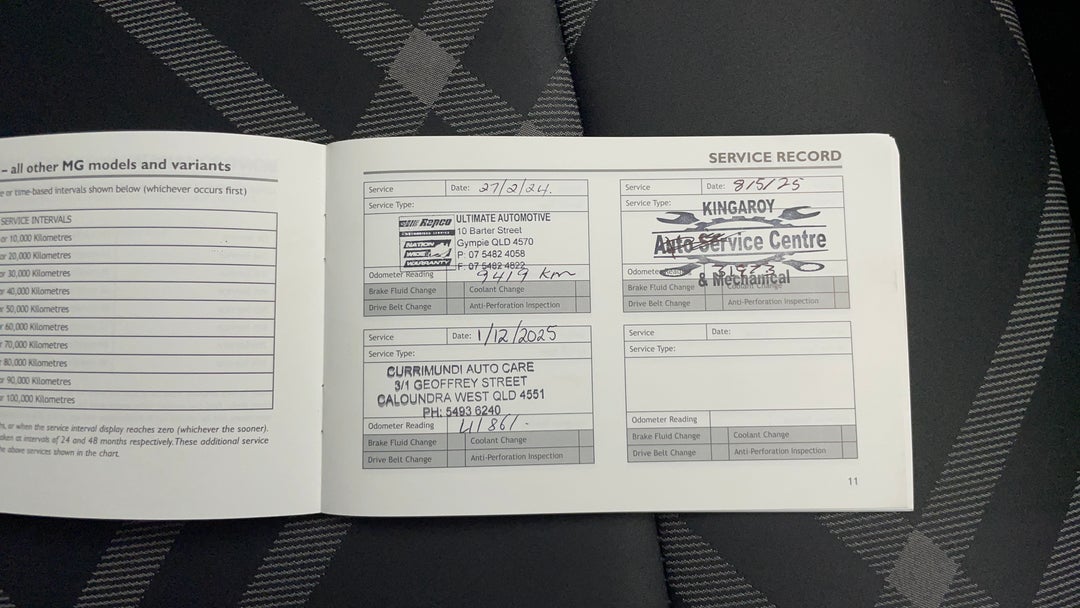 – all other MG models and variants
e or time-based intervals shown below (whichever occurs first)
SERVICE INTERVALS
or 10,000 Kilometres
or 20,000 Kilometres
or 30,000 Kilometres
or 40,000 Kilometres
or 50,000 Kilometres
or 60,000 Kilometres
r 70,000 Kilometres
80,000 Kilometres
or 90,000 Kilometres
or 100,000 Kilometres
hs, or when the service interval display reaches zero (whichever the sooner).
aken at intervals of 24 and 48 months respectively. These additional service
he above services shown in the chart.
SERVICE RECORD
Service Date: 27/2/24.
Service Type:
Repco
NATION
WIDE
WARRANTY
ULTIMATE AUTOMOTIVE
10 Barter Street
Gympie QLD 4570
P: 07 5482 4058
F: 07 5482 4822
Odometer Reading 9419 km
Brake Fluid Change Coolant Change
Drive Belt Change Anti-Perforation Inspection
Service Date: 8/5/25
Service Type:
KINGAROY
Auto Service Centre
& Mechanical
Brake Fluid Change Coolant Change
Drive Belt Change Anti-Perforation Inspection
Service Date: 1/12/2025
Service Type:
CURRIMUNDI AUTO CARE
3/1 GEOFFREY STREET
CALOUNDRA WEST QLD 4551
PH: 5493 6240
Odometer Reading 41861-
Brake Fluid Change Coolant Change
Drive Belt Change Anti-Perforation Inspection
Service Date:
Service Type:
Odometer Reading
Brake Fluid Change Coolant Change
Drive Belt Change Anti-Perforation Inspection
11